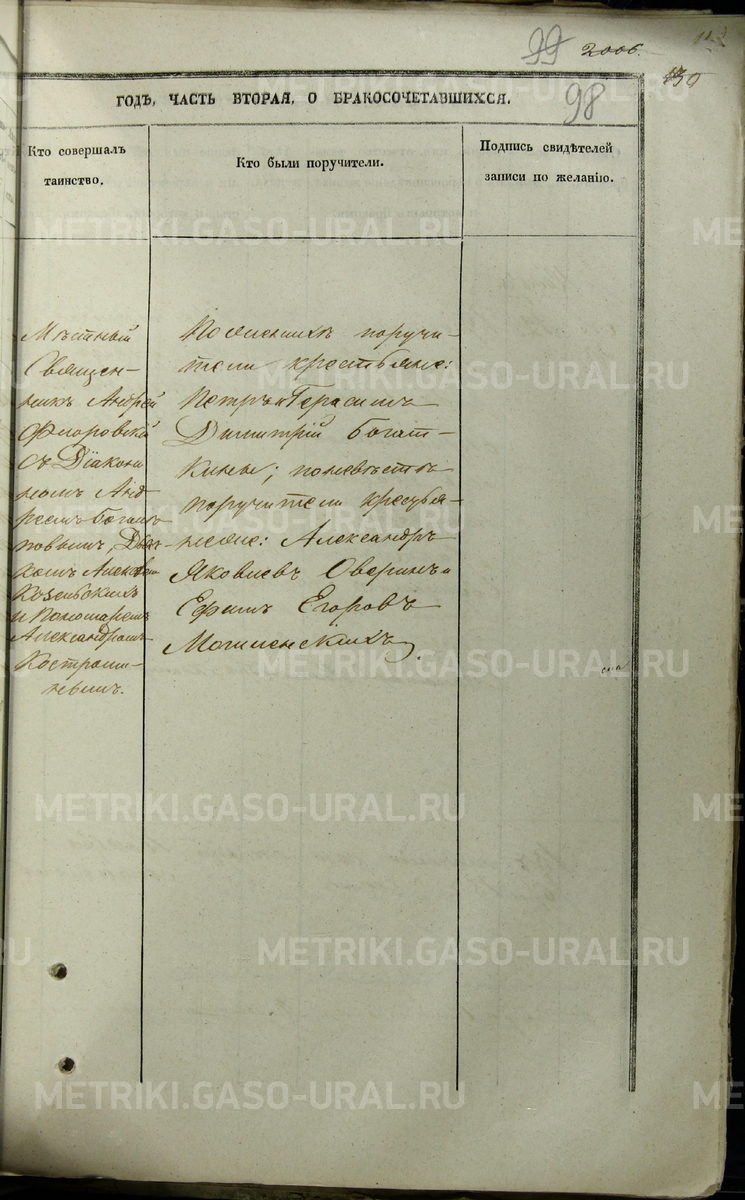 99 2006
98
ГОДЪ, ЧАСТЬ ВТОРАЯ, О БРАКОСОЧЕТАВШИХСЯ.
Кто совершалъ
таинство.
Кто были поручители.
Подпись свидѣтелей
записи по желанію.
Мѣстный
Священ-
никъ Андрей
Флоровскій
съ Діакони
номъ Анд
реемъ
повымъ,
комъ
и Пономаремъ
Александромъ
Костроми-
невымъ.
Поженихѣ поручи-
тели крестьяне:
Петръ и Герасимъ
Димитрій Богат-
кины; поневѣстѣ
поручители крестья-
не: Александръ
Яковлевъ Оверинъ и
Ефимъ Егоровъ
Могиленскихъ.
METRIKI.GASO-URAL.RU